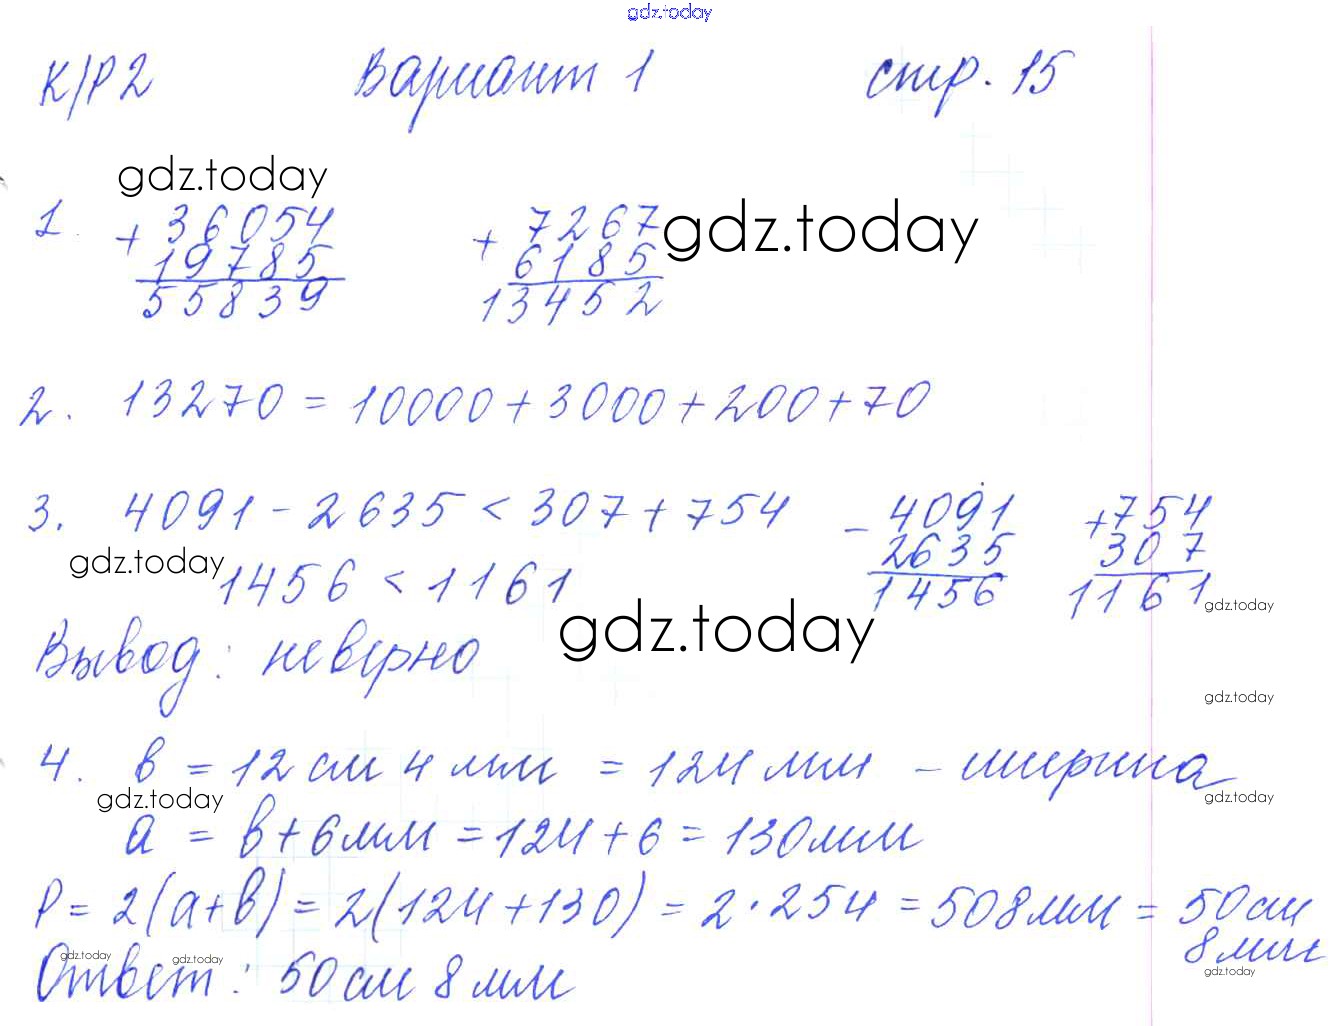 gdz.today
К/Р2 Вариант 1 стр. 15
gdz.today
1. + 36054 + 7267 gdz.today
19785 6185
55839 13452
2. 13270 = 10000 + 3000 + 200 + 70
3. 4091 - 2635 < 307 + 754 - 4091 + 754
gdz.today 2635 307
1456 < 1161 1456 1161 gdz.today
gdz.today
Вывод: неверно
gdz.today
4. в = 12 см 4 мм = 124 мм - ширина
gdz.today gdz.today
а = в + 6 мм = 124 + 6 = 130 мм
Р = 2(а+в) = 2(124 + 130) = 2 · 254 = 508 мм = 50 см
8 мм
gdz.today gdz.today gdz.today
Ответ: 50 см 8 мм